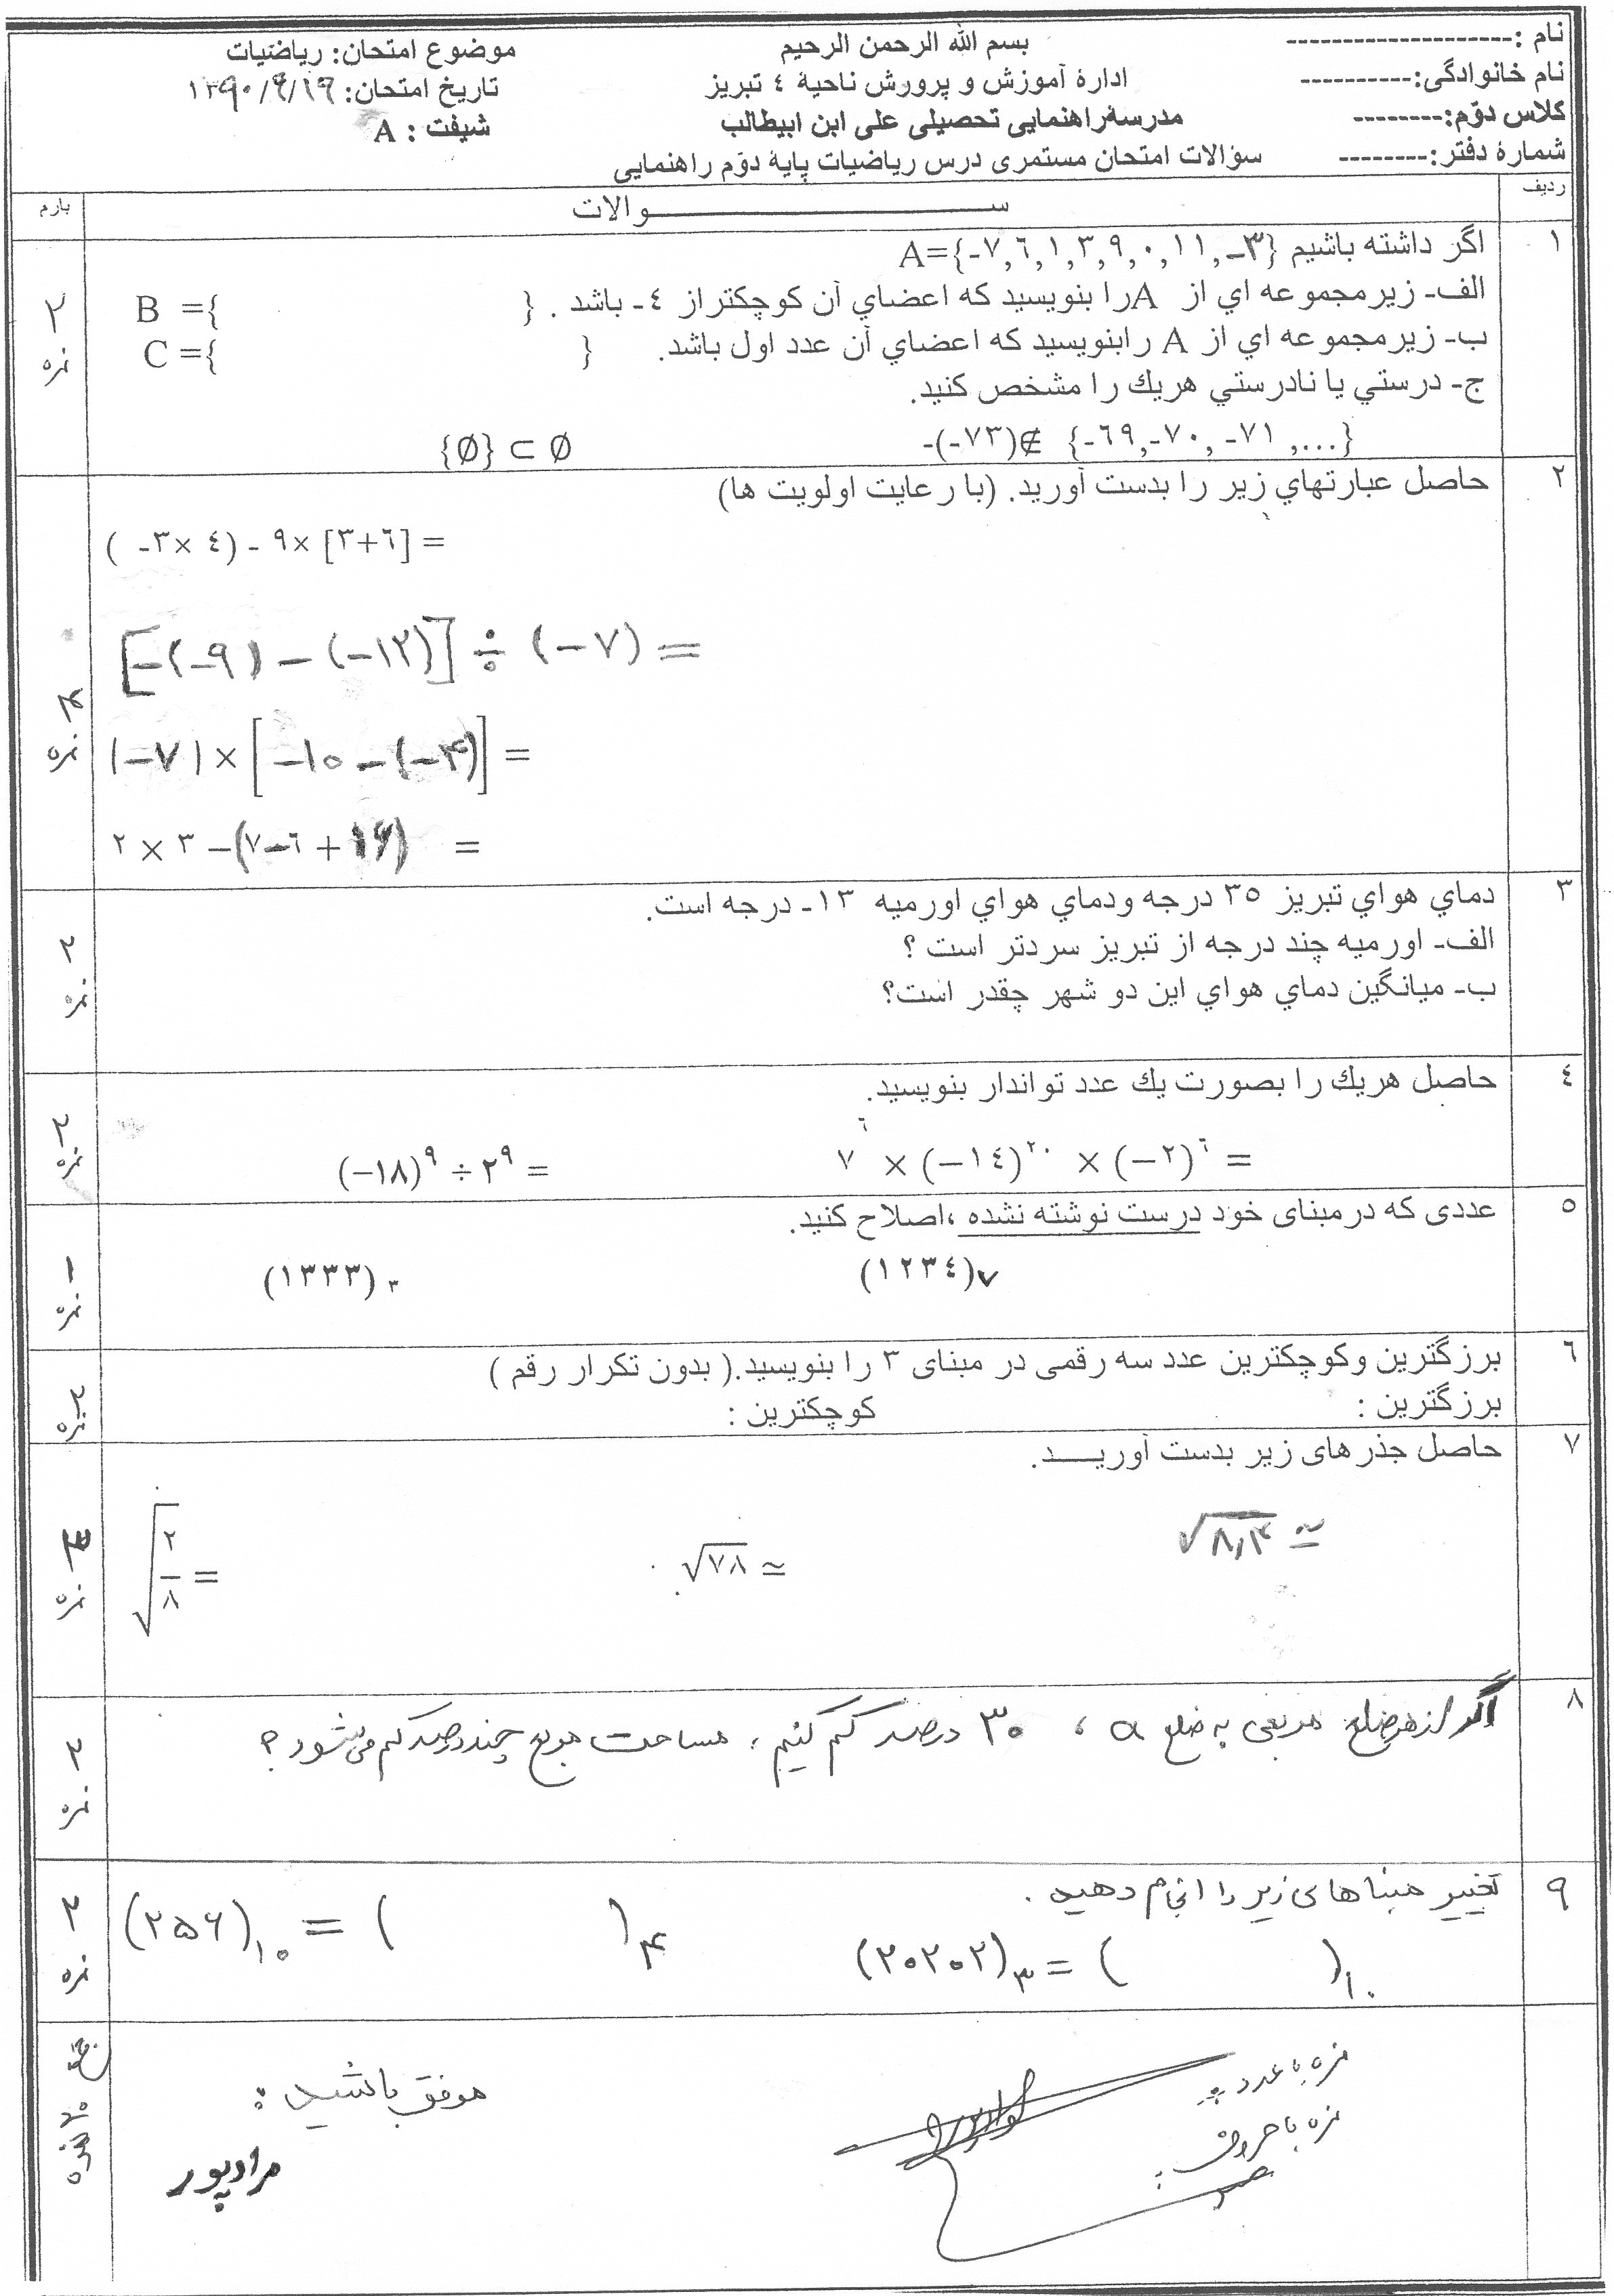 نام :--------------------
نام خانوادگی:----------
کلاس دوّم:--------
شمارهٔ دفتر:--------
بسم الله الرحمن الرحیم
ادارهٔ آموزش و پرورش ناحیهٔ ٤ تبریز
مدرسهٔ راهنمایی تحصیلی علی ابن ابیطالب
سؤالات امتحان مستمری درس ریاضیات پایهٔ دوّم راهنمایی
موضوع امتحان: ریاضیات
تاریخ امتحان: ۱۳۹۰/۹/۱۹
شیفت : A
ردیف
ســـــــــــوالات
بارم
١
اگر داشته باشیم A={-٧,٦,١,٣,٩,٠,١١,-٣}
الف- زیرمجموعه اي از A را بنویسید که اعضاي آن کوچکتراز ٤- باشد . B ={ }
ب- زیرمجموعه اي از A رابنویسید که اعضاي آن عدد اول باشد. C ={ }
ج- درستي یا نادرستي هریك را مشخص کنید.
-(-٧٣)∉ {-٦٩,-٧٠, -٧١ ,...}
{Ø} ⊂ Ø
۲ نمره
٢
حاصل عبارتهاي زیر را بدست آورید. (با رعایت اولویت ها)
( -٣×٤) - ٩×[٣+٦] =
[-(-۹) - (-۱۲)] ÷ (-۷) =
(-۷) × [-۱۰ - (-۴)] =
٢ × ٣ -(٧-٦ + ۱۶) =
۴ نمره
٣
دماي هواي تبریز ٣٥ درجه ودماي هواي اورمیه ١٣- درجه است.
الف- اورمیه چند درجه از تبریز سردتر است ؟
ب- میانگین دماي هواي این دو شهر چقدر است؟
۲ نمره
٤
حاصل هریك را بصورت یك عدد تواندار بنویسید.
٧⁶ × (-١٤)²⁰ × (-٢)⁶ =
(-١٨)⁹ ÷ ٢⁹ =
۲ نمره
٥
عددی که درمبنای خود درست نوشته نشده ،اصلاح کنید.
(١٢٣٤)₇
(١٣٣٣)₃
۱ نمره
٦
برزگترین وکوچکترین عدد سه رقمی در مبنای ٣ را بنویسید.( بدون تکرار رقم )
برزگترین : کوچکترین :
۲ نمره
٧
حاصل جذرهای زیر بدست آوریــــد.
√۸٫۳ ≃
√٧٨ ≃
√٢/٨ =
نمره
٨
اگر از هر ضلع مربعی به ضلع a ، ۳۰ درصد کم کنیم ، مساحت مربع چند درصد کم می‌شود ؟
۲ نمره
۹
تغییر مبناهای زیر را انجام دهید .
(۲۰۲۰۲)₃ = ( )₁₀
(۲۵۶)₁₀ = ( )₄
۲ نمره
نمره با عدد :
نمره با حروف :
موفق باشید :
مرادپور
جمع ۲۰ نمره